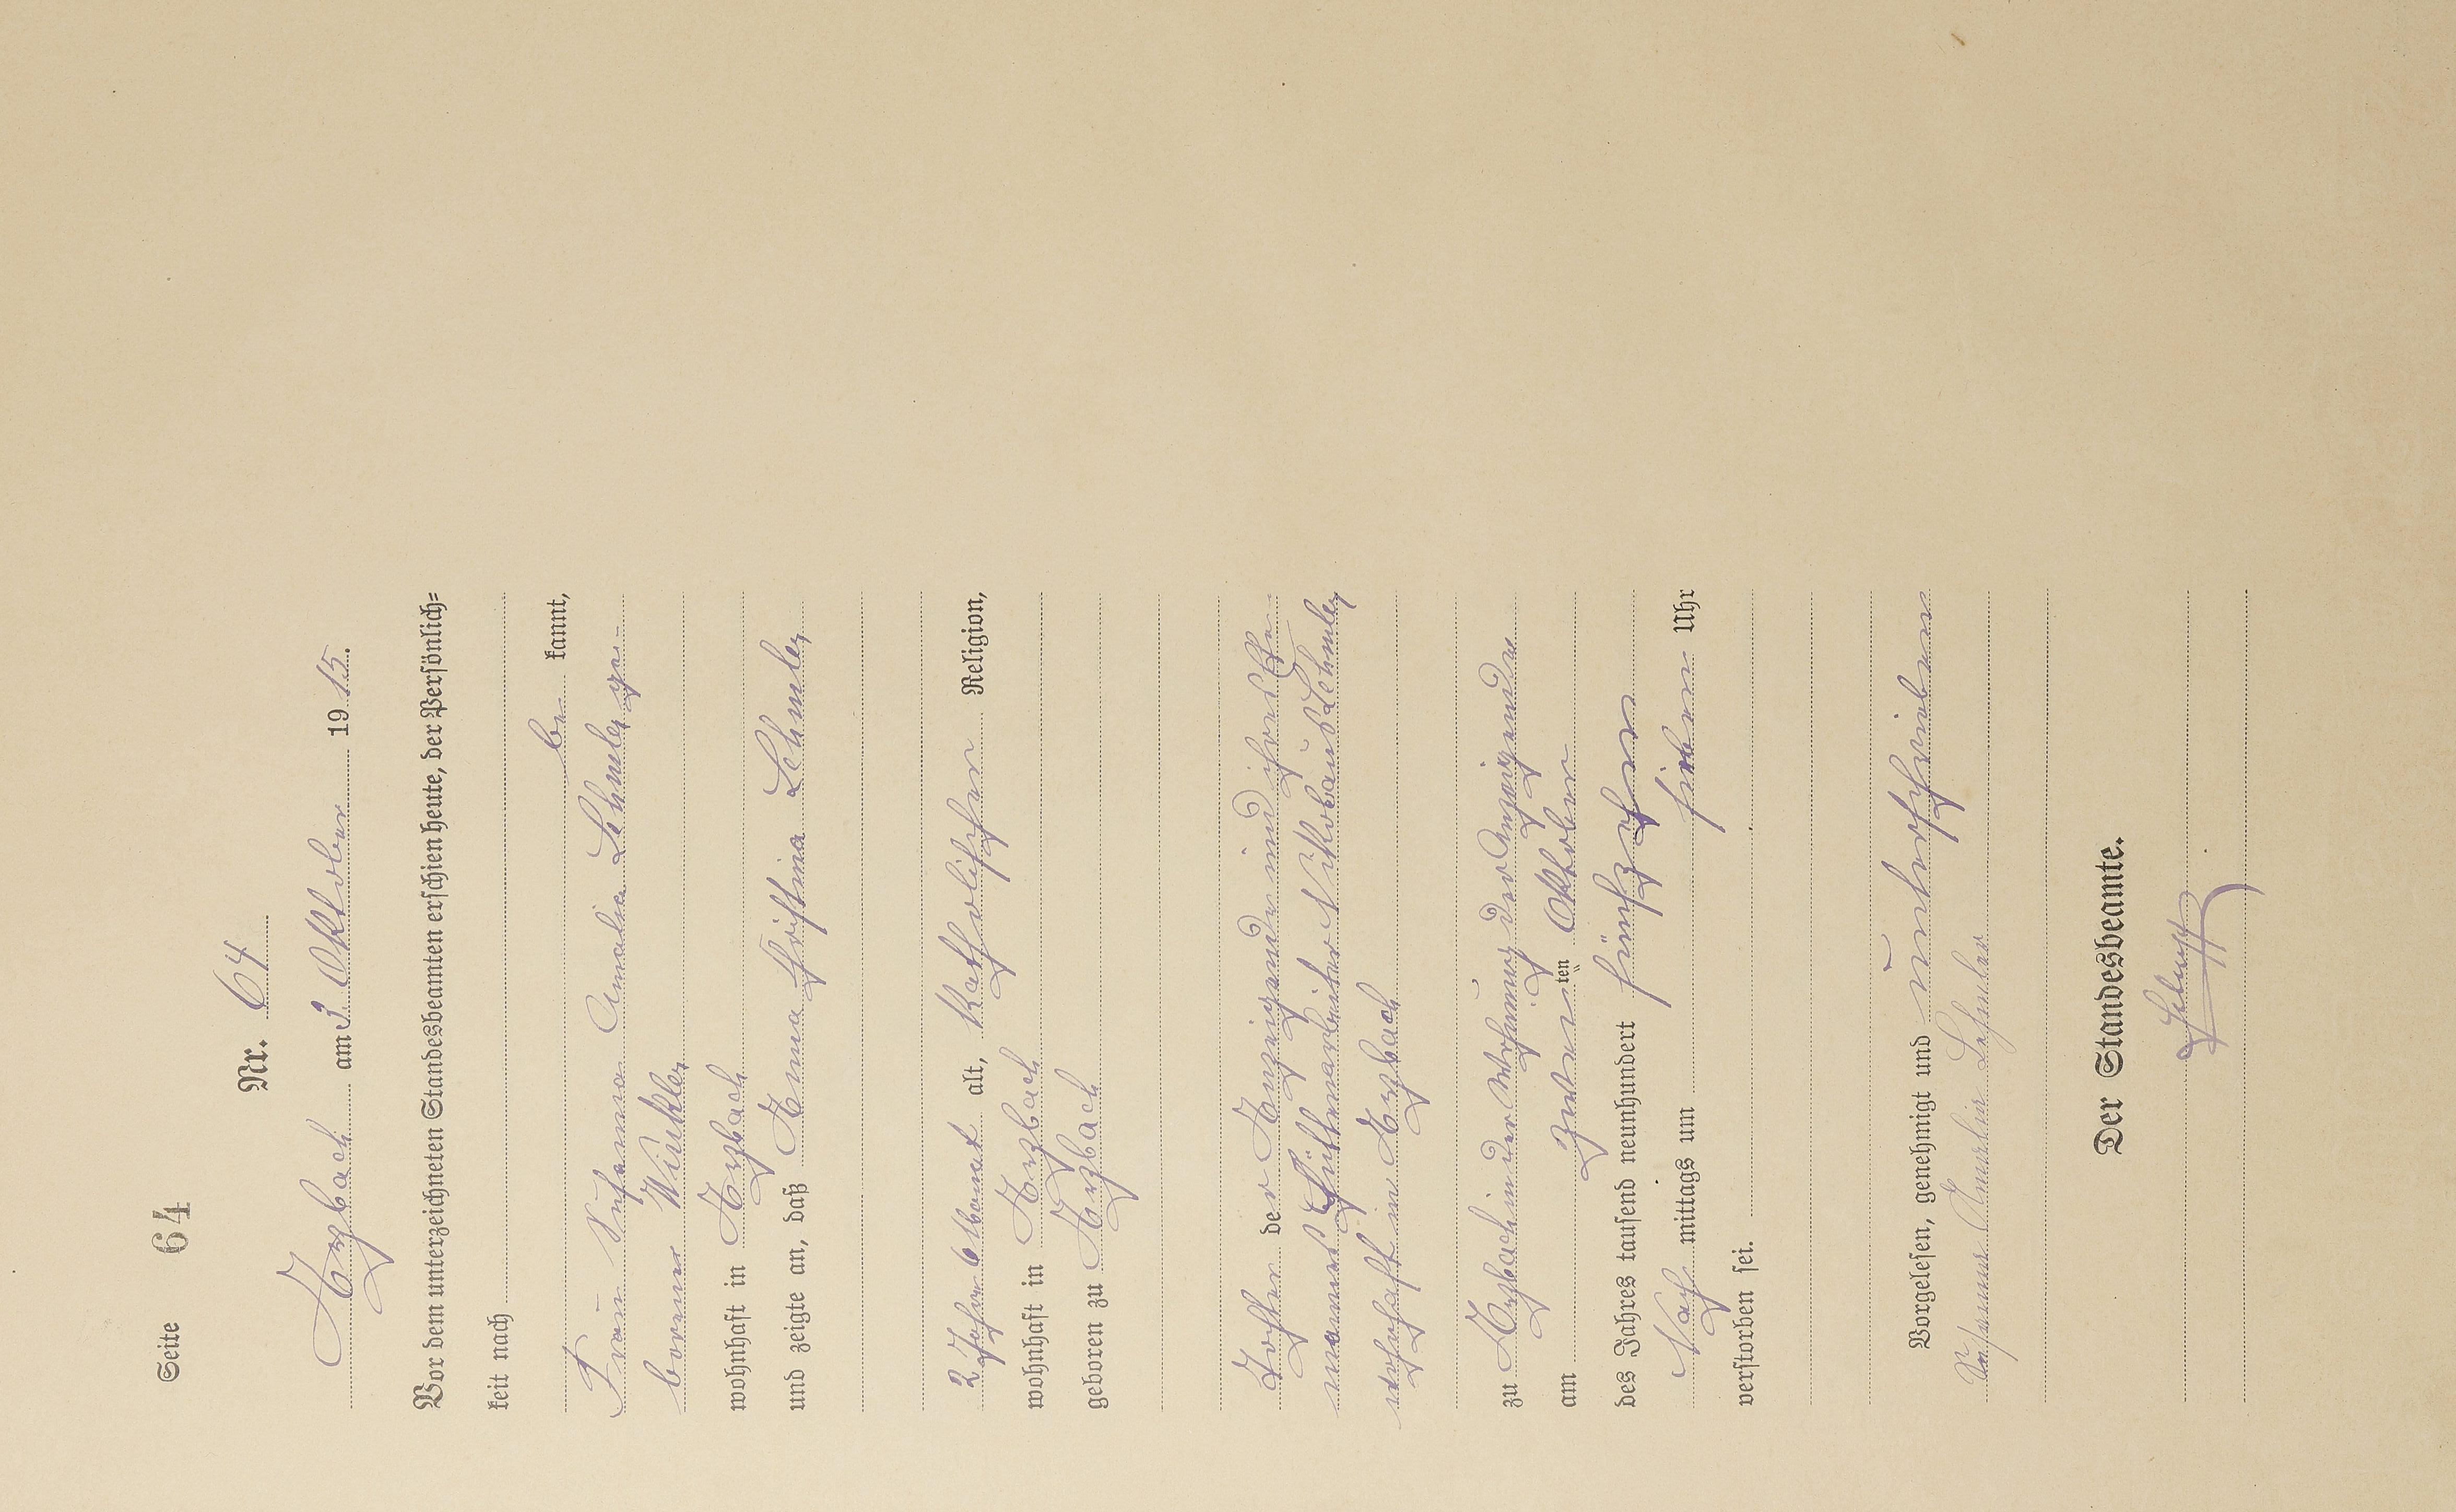 Seite 64
Nr. 64
Arzbach am 3. Oktober 1915.
Vor dem unterzeichneten Standesbeamten erschien heute, der Persönlich-
keit nach
be kannt,
Frau Susanna Amalia Lehmler ge-
borene Winkler
wohnhaft in Arzbach
und zeigte an, daß Anna Christina Lehmler
2 Jahre 6 Monat alt, Katholischer Religion,
wohnhaft in Arzbach
geboren zu Arzbach
Tochter der Anzeigende und ihres Ehe-
mannes Hüttenarbeiter Nikolaus Lehmler
wohnhaft in Arzbach
zu Arzbach in der Wohnung der Anzeigende
am zweiten Oktober
des Jahres tausend neunhundert fünfzehn
Nach mittags um sieben Uhr
verstorben sei.
Vorgelesen, genehmigt und unterschrieben
Susanna Amalia Lehmler
Der Standesbeamte.